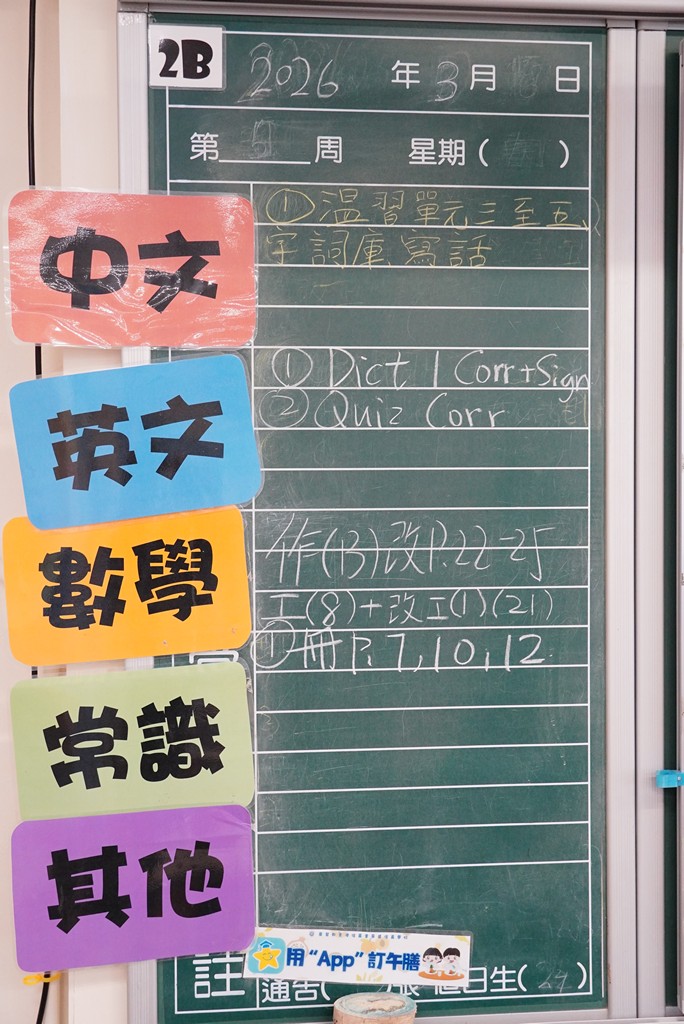 2B
2026 年 3 月 日
第 周 星期( )
中文
① 温習單元三至五
字詞庫寫話
英文
① Dict 1 Corr+Sign
② Quiz Corr
數學
作(B)改P.22-25
工(8)+改工(1)(21)
常識
① 冊P.7,10,12
其他
用“App”訂午膳
註
通告( 張 值日生(24)